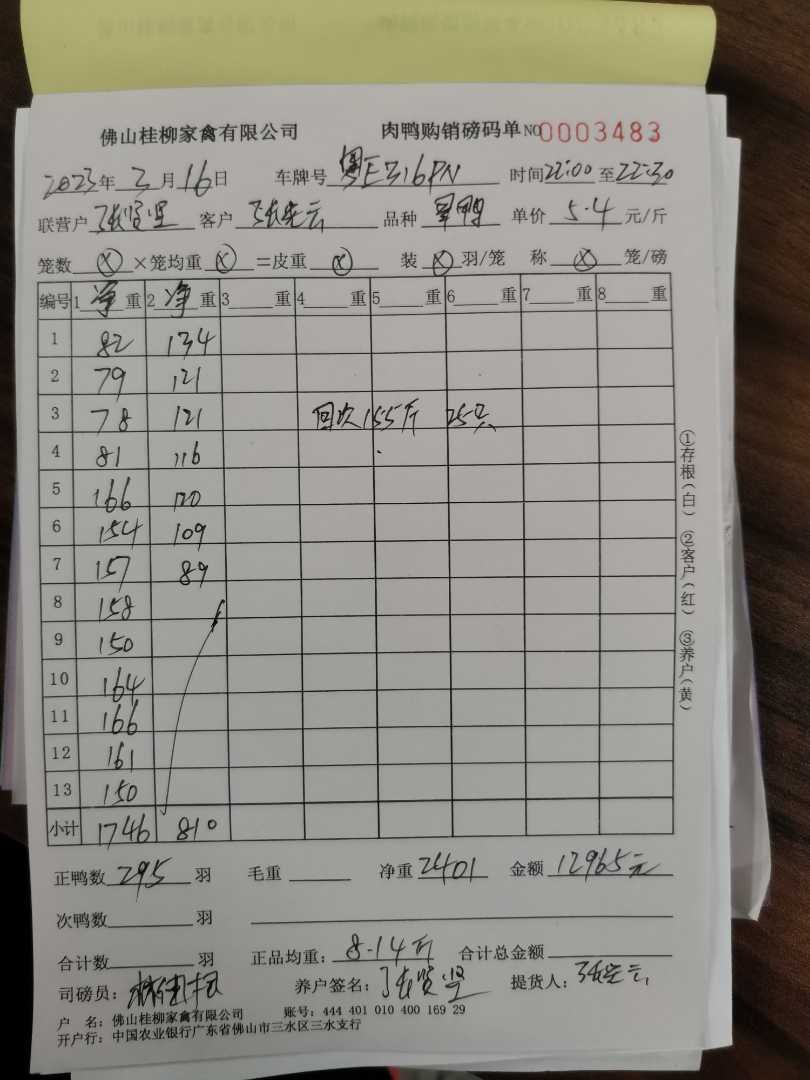 佛山桂柳家禽有限公司 肉鸭购销磅码单 NO 0003483
2023年 3月16日 车牌号 粤E316PN 时间22:00至22:30
联营户 张贤坚 客户 张先云 品种 单价 5.4 元/斤
笼数 ⓧ ×笼均重 ⓧ =皮重 ⓧ 装 ⓧ 羽/笼 称 ⓧ 笼/磅
编号 1 净 重 2 净 重 3 重 4 重 5 重 6 重 7 重 8 重
1 82 134
2 79 121
3 78 121 回次155斤 25只
4 81 116
5 166 120
6 154 109
7 157 89
8 158
9 150
10 164
11 166
12 161
13 150
小计 1746 810
正鸭数 295 羽 毛重 净重 2401 金额 12965元
次鸭数 羽
合计数 羽 正品均重: 8.14斤 合计总金额
司磅员: 养户签名: 张贤坚 提货人: 张先云
户 名: 佛山桂柳家禽有限公司 账号: 444 401 010 400 169 29
开户行: 中国农业银行广东省佛山市三水区三水支行
①存根(白) ②客户(红) ③养户(黄)